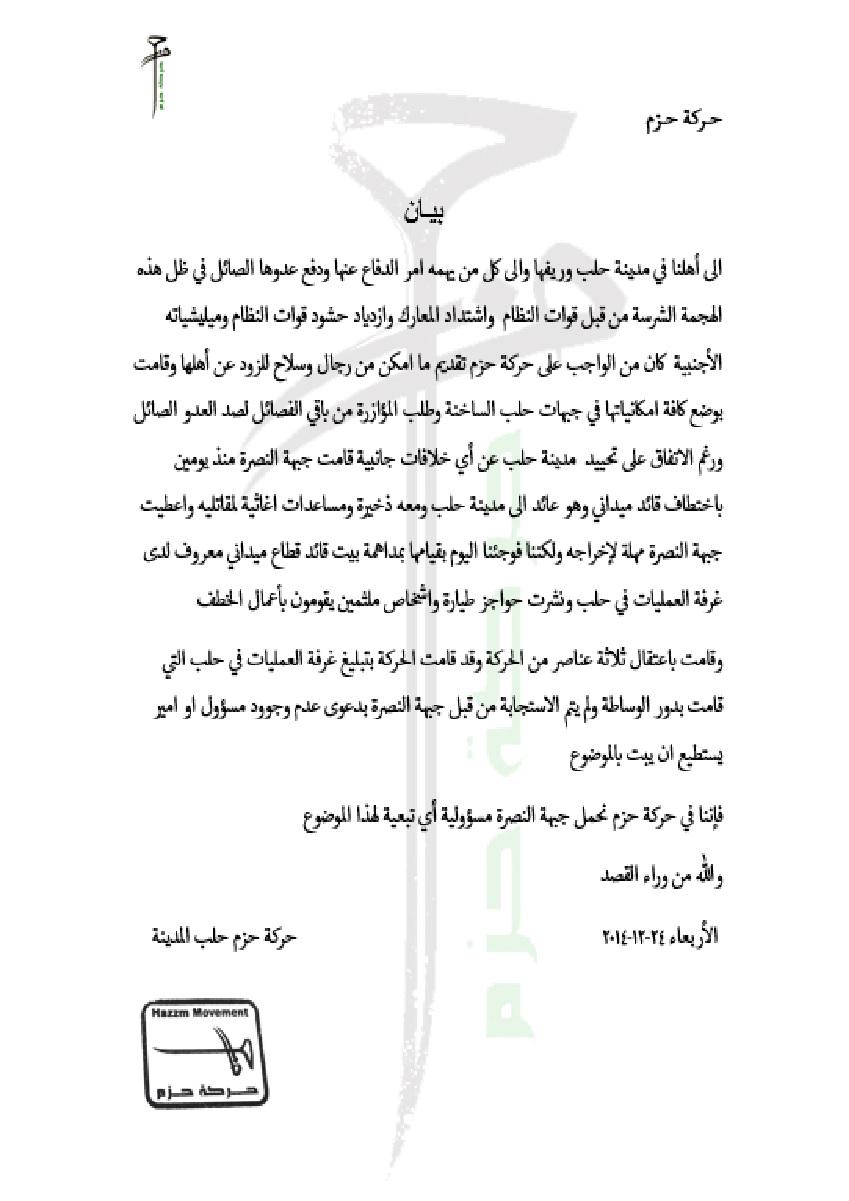 حركة حزم
حركة حزم
بيـان
الى أهلنا في مدينة حلب وريفها والى كل من يهمه امر الدفاع عنها ودفع عدوها الصائل في ظل هذه
الهجمة الشرسة من قبل قوات النظام واشتداد المعارك وازدياد حشود قوات النظام وميليشياته
الأجنبية كان من الواجب على حركة حزم تقديم ما امكن من رجال وسلاح للزود عن أهلها وقامت
بوضع كافة امكانياتها في جبهات حلب الساخنة وطلب المؤازرة من باقي الفصائل لصد العدو الصائل
ورغم الاتفاق على تحييد مدينة حلب عن أي خلافات جانبية قامت جبهة النصرة منذ يومين
باختطاف قائد ميداني وهو عائد الى مدينة حلب ومعه ذخيرة ومساعدات اغاثية لمقاتليه واعطيت
جبهة النصرة مهلة لإخراجه ولكننا فوجئنا اليوم بقيامها بمداهمة بيت قائد قطاع ميداني معروف لدى
غرفة العمليات في حلب ونشرت حواجز طيارة واشخاص ملثمين يقومون بأعمال الخطف
وقامت باعتقال ثلاثة عناصر من الحركة وقد قامت الحركة بتبليغ غرفة العمليات في حلب التي
قامت بدور الوساطة ولم يتم الاستجابة من قبل جبهة النصرة بدعوى عدم وجوود مسؤول او امير
يستطيع ان يبت بالموضوع
فإننا في حركة حزم نحمل جبهة النصرة مسؤولية أي تبعية لهذا الموضوع
والله من وراء القصد
الأربعاء ٢٤-١٢-٢٠١٤ حركة حزم حلب المدينة
Hazzm Movement
حركة حزم
حركة حزم